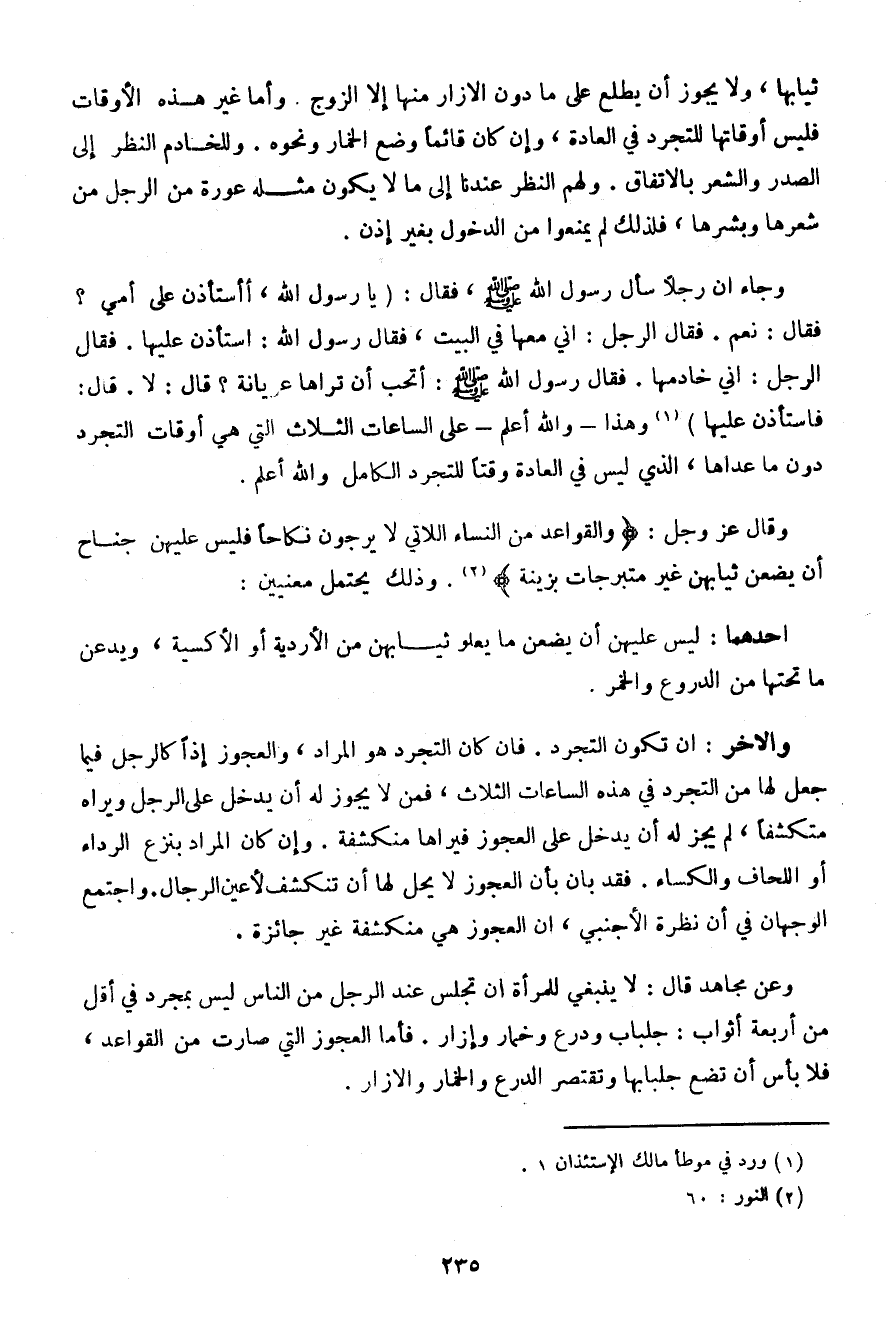 ثيابها ، ولا يجوز أن يطلع على ما دون الازار منها إلا الزوج . وأما غير هـذه الأوقات
فليس أوقاتها للتجرد في العادة ، وإن كان قائماً وضع الخمار ونحوه . وللخـادم النظر إلى
الصدر والشعر بالاتفاق . ولهم النظر عندنا إلى ما لا يكون مثـله عورة من الرجل من
شعرها وبشرها ، فلذلك لم يمنعوا من الدخول بغير إذن .
وجاء ان رجلاً سأل رسول الله ﷺ ، فقال : ( يا رسول الله ، أأستأذن على أمي ؟
فقال : نعم . فقال الرجل : اني معها في البيت ، فقال رسول الله : استأذن عليها . فقال
الرجل : اني خادمها . فقال رسول الله ﷺ : أتحب أن تراها عريانة ؟ قال : لا . قال :
فاستأذن عليها ) (١) وهذا – والله أعلم – على الساعات الثـلاث التي هي أوقات التجرد
دون ما عداها ، الذي ليس في العادة وقتاً للتجرد الكامل والله أعلم .
وقال عز وجل : ﴿ والقواعد من النساء اللاتي لا يرجون نكاحاً فليس عليهن جنـاح
أن يضعن ثيابهن غير متبرجات بزينة ﴾ (٢) . وذلك يحتمل معنيين :
احدهما : ليس عليهن أن يضعن ما يعلو ثيـابهن من الأردية أو الأكسية ، ويدعن
ما تحتها من الدروع والخمر .
والاخر : ان تكون التجرد . فان كان التجرد هو المراد ، والعجوز إذاً كالرجل فيما
جعل لها من التجرد في هذه الساعات الثلاث ، فمن لا يجوز له أن يدخل على الرجل ويراه
متكشفاً ، لم يجز له أن يدخل على العجوز فيراها منكشفة . وإن كان المراد بنزع الرداء
أو اللحاف والكساء . فقد بان بأن العجوز لا يحل لها أن تنكشف لأعين الرجال . واجتمع
الوجهان في أن نظرة الأجنبي ، ان العجوز هي منكشفة غير جائزة .
وعن مجاهد قال : لا ينبغي للمرأة ان تجلس عند الرجل من الناس ليس بمجرد في أقل
من أربعة أثواب : جلباب ودرع وخمار وإزار . فأما العجوز التي صارت من القواعد ،
فلا بأس أن تضع جلبابها وتقتصر الدرع والخمار والازار .
(١) ورد في موطأ مالك الإستئذان ١ .
(٢) النور : ٦٠
٢٣٥